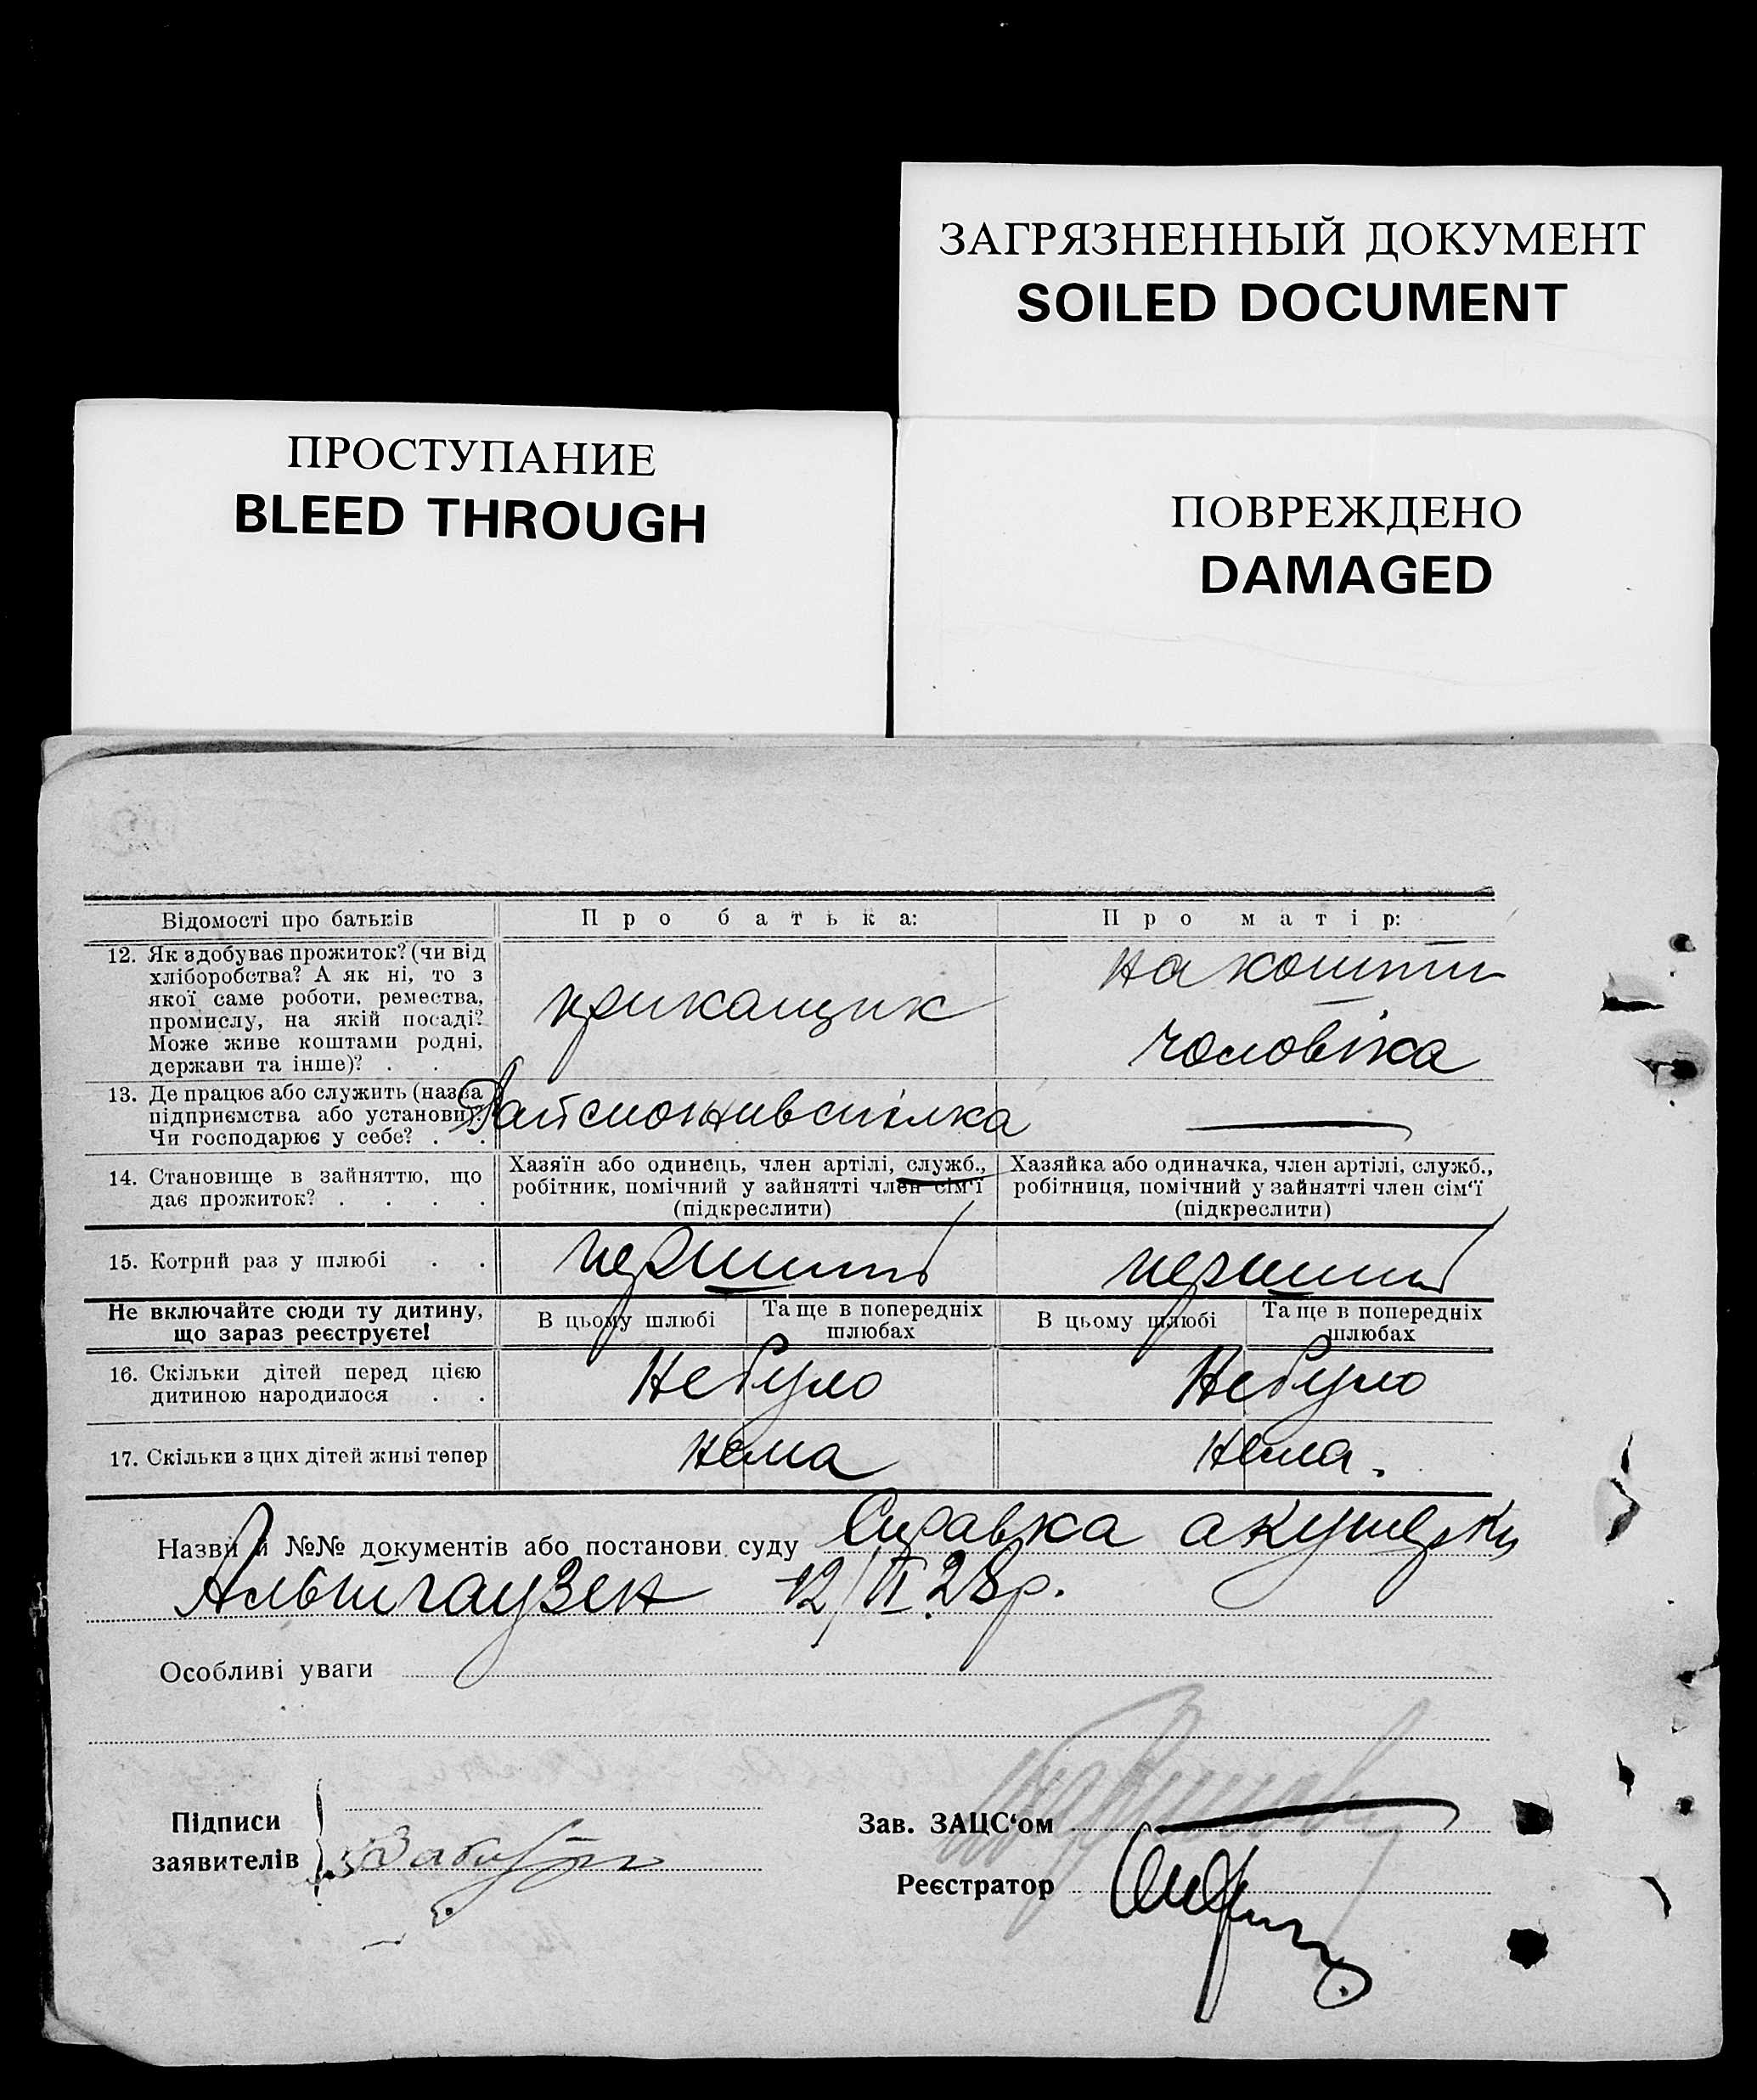 ЗАГРЯЗНЕННЫЙ ДОКУМЕНТ
SOILED DOCUMENT
ПРОСТУПАНИЕ
BLEED THROUGH
ПОВРЕЖДЕНО
DAMAGED
Відомості про батьків
Про батька:
Про матір:
12. Як здобуває прожиток? (чи від
хліборобства? А як ні, то з
якої саме роботи, ремества,
промислу, на якій посаді?
Може живе коштами родні,
держави та інше)? . .
прикащик
на кошти
чоловіка
13. Де працює або служить (назва
підприємства або установи)?
Чи господарює у себе? . .
Райспоживспілка
—
14. Становище в зайняттю, що
дає прожиток? . . . .
Хазяїн або одинець, член артілі, служб.,
робітник, помічний у зайнятті член сім'ї
(підкреслити)
Хазяйка або одиначка, член артілі, служб.,
робітниця, помічний у зайнятті член сім'ї
(підкреслити)
15. Котрий раз у шлюбі . .
перший
перший
Не включайте сюди ту дитину,
що зараз реєструєте!
В цьому шлюбі
Та ще в попередніх
шлюбах
В цьому шлюбі
Та ще в попередніх
шлюбах
16. Скільки дітей перед цією
дитиною народилося . .
Не було
Не було
17. Скільки з цих дітей живі тепер
нема
нема.
Назви й №№ документів або постанови суду Справка акушерки
Альтгаузен 12/VI 28р.
Особливі уваги
Підписи
заявителів
Зав. ЗАЦС'ом
Реєстратор